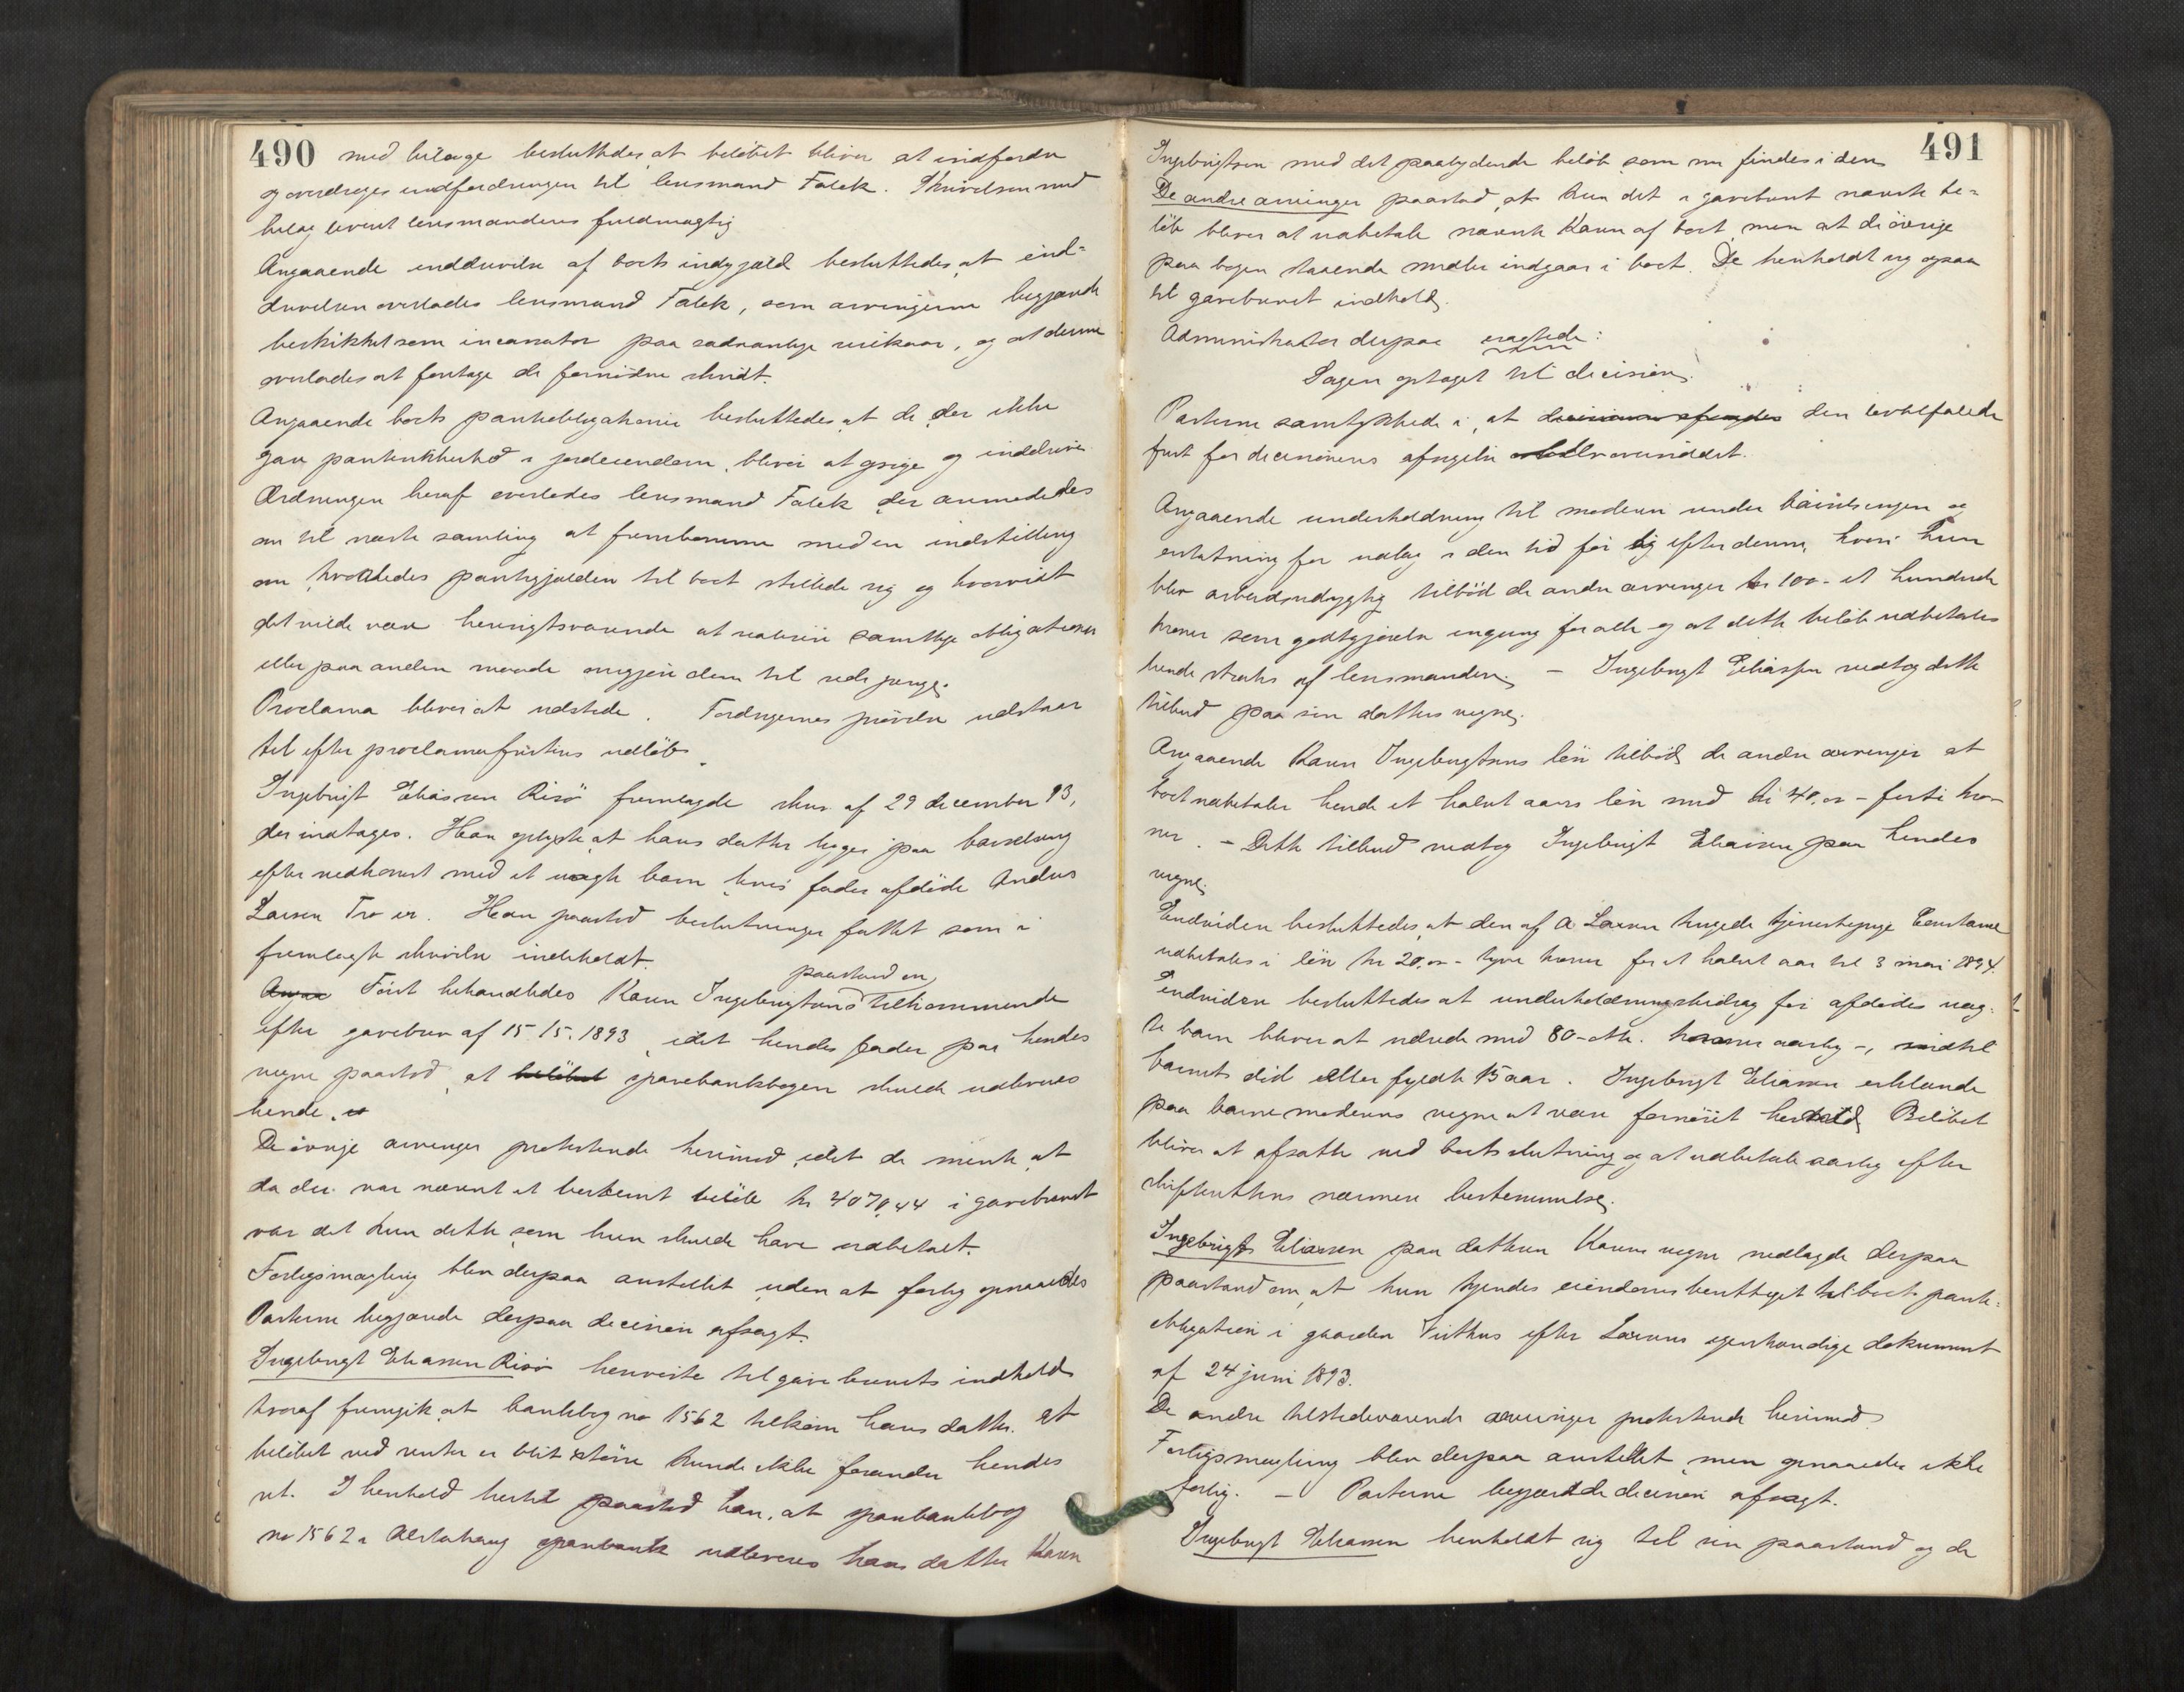 490 med bilage besluttedes, at beløbet bliver at indfordre
og overdrages indfordringen til lensmand Falck. Skrivelsen med
bilag leveret lensmandens fuldmægtig
Angaaende inddrivelse af boets indgjæld besluttedes, at ind-
drivelsen overlades lensmand Falck, som arvingerne begjærede
beskikket som incassator paa sædvanlige vilkaar, og at denne
overlades at foretage de fornødne skridt.
Angaaende boets panteobligationer besluttedes, at de, der ikke
gav pantesikkerhed i jordeiendom, bliver at opsige og inddrive
Ordningen heraf overlodes lensmand Falck, der anmodedes
om til næste samling at fremkomme med en indstilling
om, hvorledes pantegjælden til boet stillede sig og hvorvidt
det vilde være hensigtsvarende at realisere samtlige obligationer
eller paa anden maade omgjøre dem til rede penge.
Proclama bliver at udstede. Fordringernes prøvelse udstaar
til efter proclamafristens udløb.
Ingebrigt Eliassen Risø fremlagde skr. af 29 december 93,
der indtages. Han oplyste, at hans datter ligger paa barselseng
efter nedkomst med et uægte barn, hvis fader afdøde Andreas
Larsen Tro er. Han paastod beslutninger fattet som i
fremlagte skrivelse indeholdt.
Angaa Først behandledes Karen Ingebrigtsens paastand om tilkommende
efter gavebrev af 15/5. 1893, idet hendes fader paa hendes
vegne paastod, at beløbet sparebankbogen skulde udleveres
hende.
De øvrige arvinger protesterede herimod, idet de mente, at
da der var nævnt et bestemt beløb kr 4070,44 i gavebrevet
var det kun dette, som hun skulde have udbetalt.
Forligsmægling blev derpaa anstillet, uden at forlig opnaaedes
Parterne begjærede derpaa decision afsagt.
Ingebrigt Eliassen Risø henviste til gavebrevets indhold
hvoraf fremgik, at bankbog no 1562 tilkom hans datter. At
beløbet ved renter er blit større kunde ikke forandre hendes
ret. I henhold hertil paastod han, at sparebankbog
no 1562 i Alstahaug sparebank udleveres hans datter Karen
491
Ingebrigtsen med det paalydende beløb som nu findes i den
De andre arvinger paastod, at kun det i gavebrevet nævnte be-
løb bliver at udbetale nævnte Karen af boet, men at de øvrige
paa bogen staaende midler indgaar i boet. De henholdt sig ogsaa
til gavebrevet indhold.
Administrator derpaa eragtede:
Sagen optaget til decision.
Parterne samtykkede i, at decisionen afsagdes den lovbefalede
frist for decisionens afsigelse
Angaaende underholdning til moderen under barselsengen og
erstatning for udlæg i den tid før og efter denne, hvori hun
blev arbeidsudygtig tilbød de andre arvinger kr 100 - et hundrede
kroner som godtgjørelse engang for alle og at dette beløb udbetales
hende straks af lensmanden. - Ingebrigt Eliassen vedtog dette
tilbud paa sin datters vegne.
Angaaende Karen Ingebrigtsens løn tilbød de andre arvinger at
boet udbetaler hende et halvt aars løn med kr 40,00 - førti kro-
ner. - Dette tilbud vedtog Ingebrigt Eliassen paa hendes
vegne.
Endvidere besluttedes, at den af A Larsen tingede tjenestepige Constance
udbetales i løn kr 20,00 - tyve kroner for et halvt aar til 3 mai 1894.
Endvidere besluttedes at underholdningsbidrag for afdødes uæg-
te barn bliver at udrede med 80 - otti - kroner aarlig -, indtil
barnets død eller fyldte 15 aar. Ingebrigt Eliassen erklærede
paa barnemoderens vegne at være fornøiet hermed Beløbet
bliver at afsætte ved boets slutning og at udbetale aarlig efter
skifterettens nærmere bestemmelse.
Ingebrigt Eliassen paa datteren Karens vegne nedlagde derpaa
paastand om, at hun kjendes eiendomsberettiget til boets pante-
obligation i gaarden efter Larsens egenhændige dokument
af 24 juni 1893.
De andre tilstedeværende arvinger protesterede herimod.
Forligsmægling blev derpaa anstillet, men opnaaedes ikke
forlig. - Parterne begjærede decision afsagt.
Ingebrigt Eliassen henholdt sig til sin paastand og de